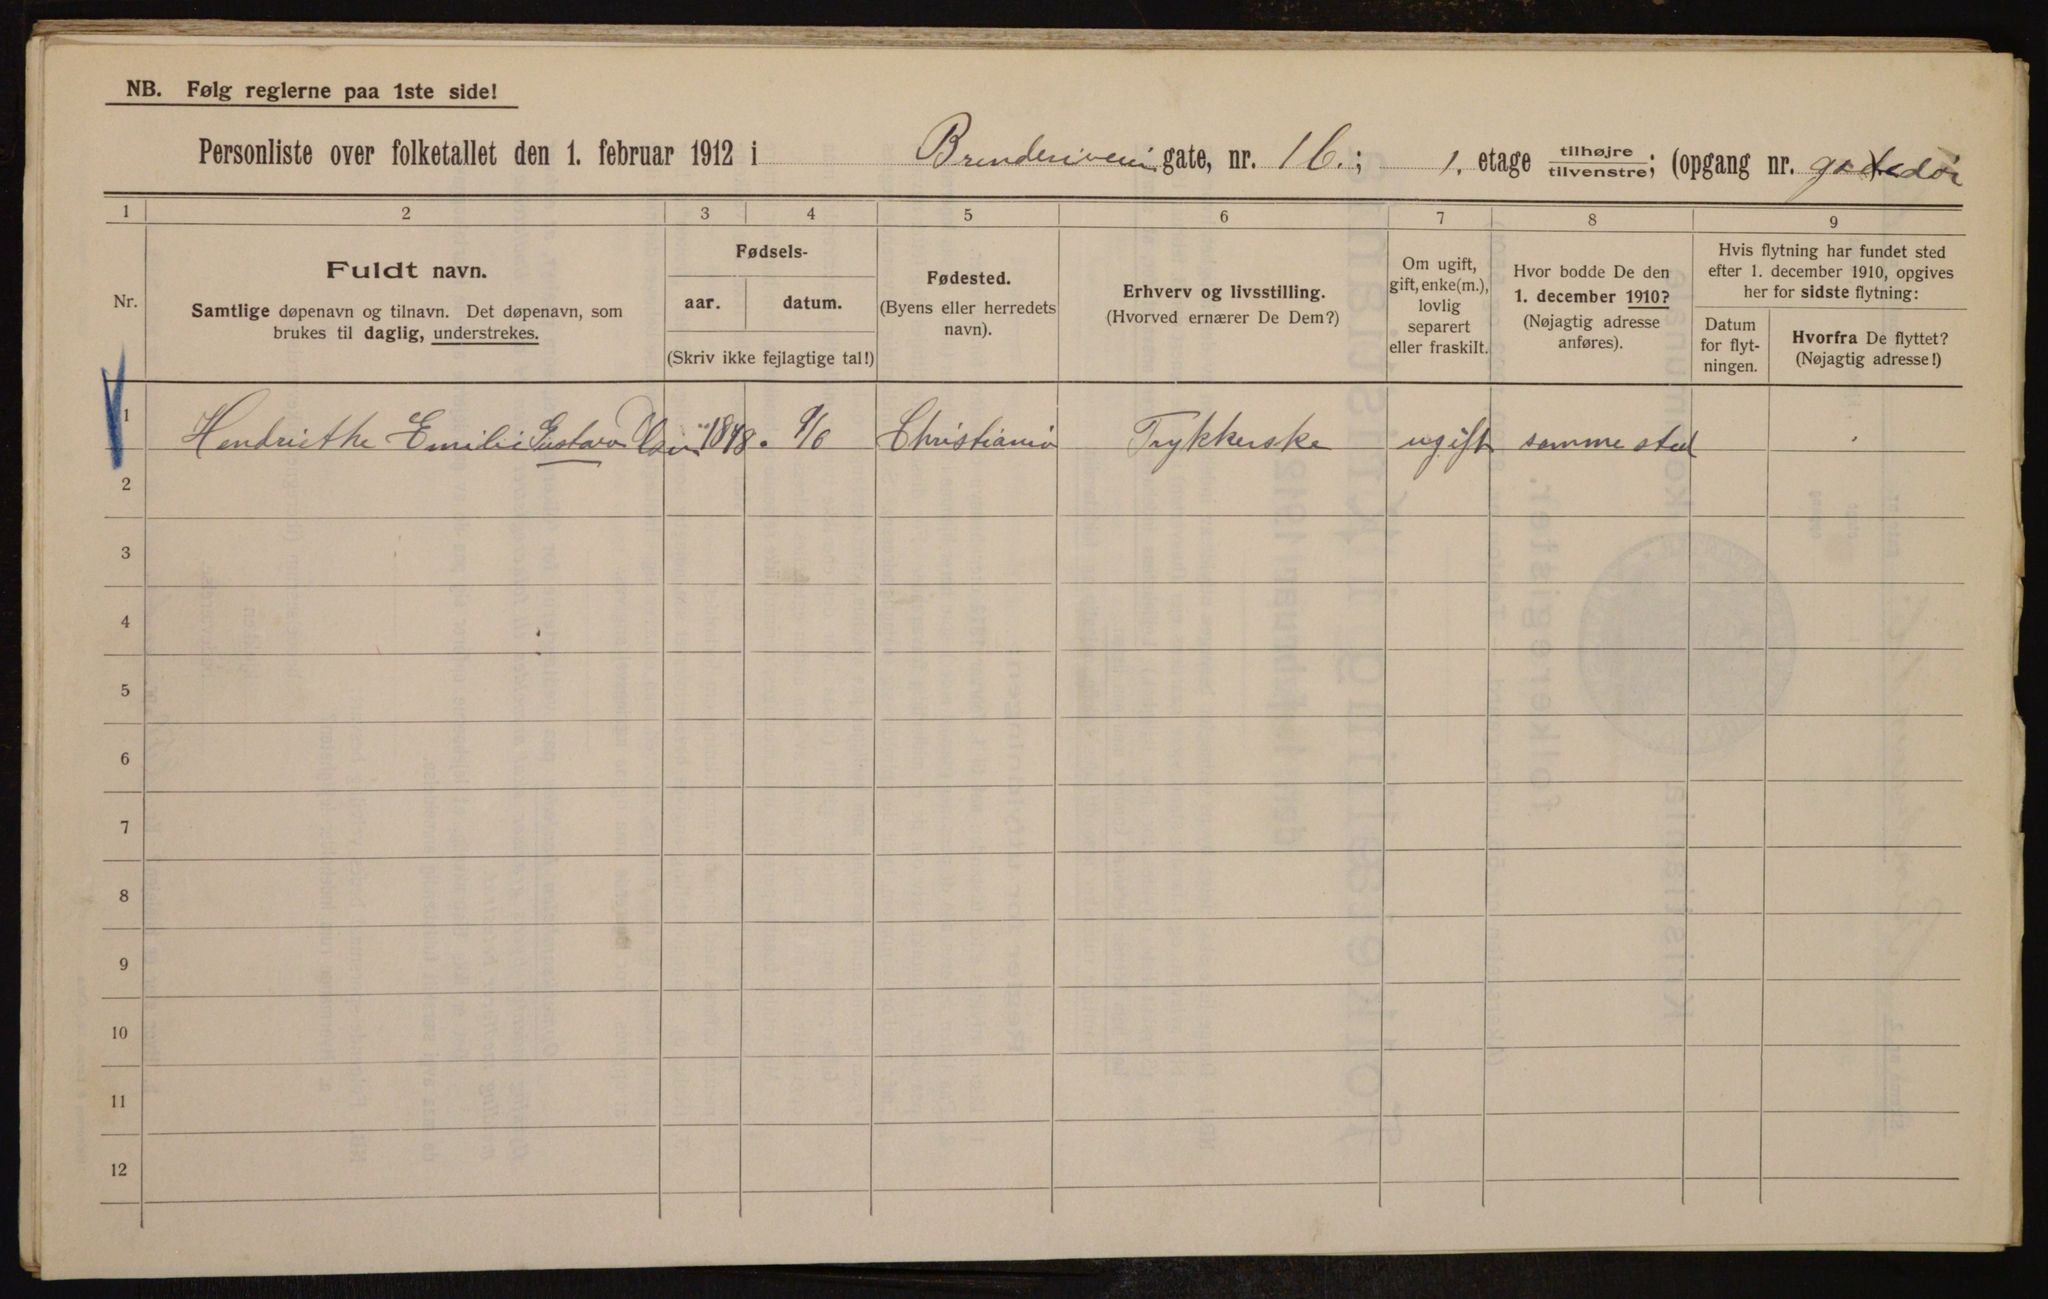 NB. Følg reglerne paa 1ste side!
Personliste over folketallet den 1. februar 1912 i Brenderiveien gate, nr. 16.; 1. etage tilhøjre tilvenstre; (opgang nr. gatedør
1 2 3 4 5 6 7 8 9
Nr.
Fuldt navn.
Samtlige døpenavn og tilnavn. Det døpenavn, som
brukes til daglig, understrekes.
Fødsels-
aar. datum.
(Skriv ikke fejlagtige tal!)
Fødested.
(Byens eller herredets
navn).
Erhverv og livsstilling.
(Hvorved ernærer De Dem?)
Om ugift,
gift, enke(m.),
lovlig
separert
eller fraskilt.
Hvor bodde De den
1. december 1910?
(Nøjagtig adresse
anføres).
Hvis flytning har fundet sted
efter 1. december 1910, opgives
her for sidste flytning:
Datum
for flyt-
ningen.
Hvorfra De flyttet?
(Nøjagtig adresse!)
1 Hendriethe Emilie Gustava 1848. 9/6 Christiania Trykkerske ugift samme sted
2
3
4
5
6
7
8
9
10
11
12